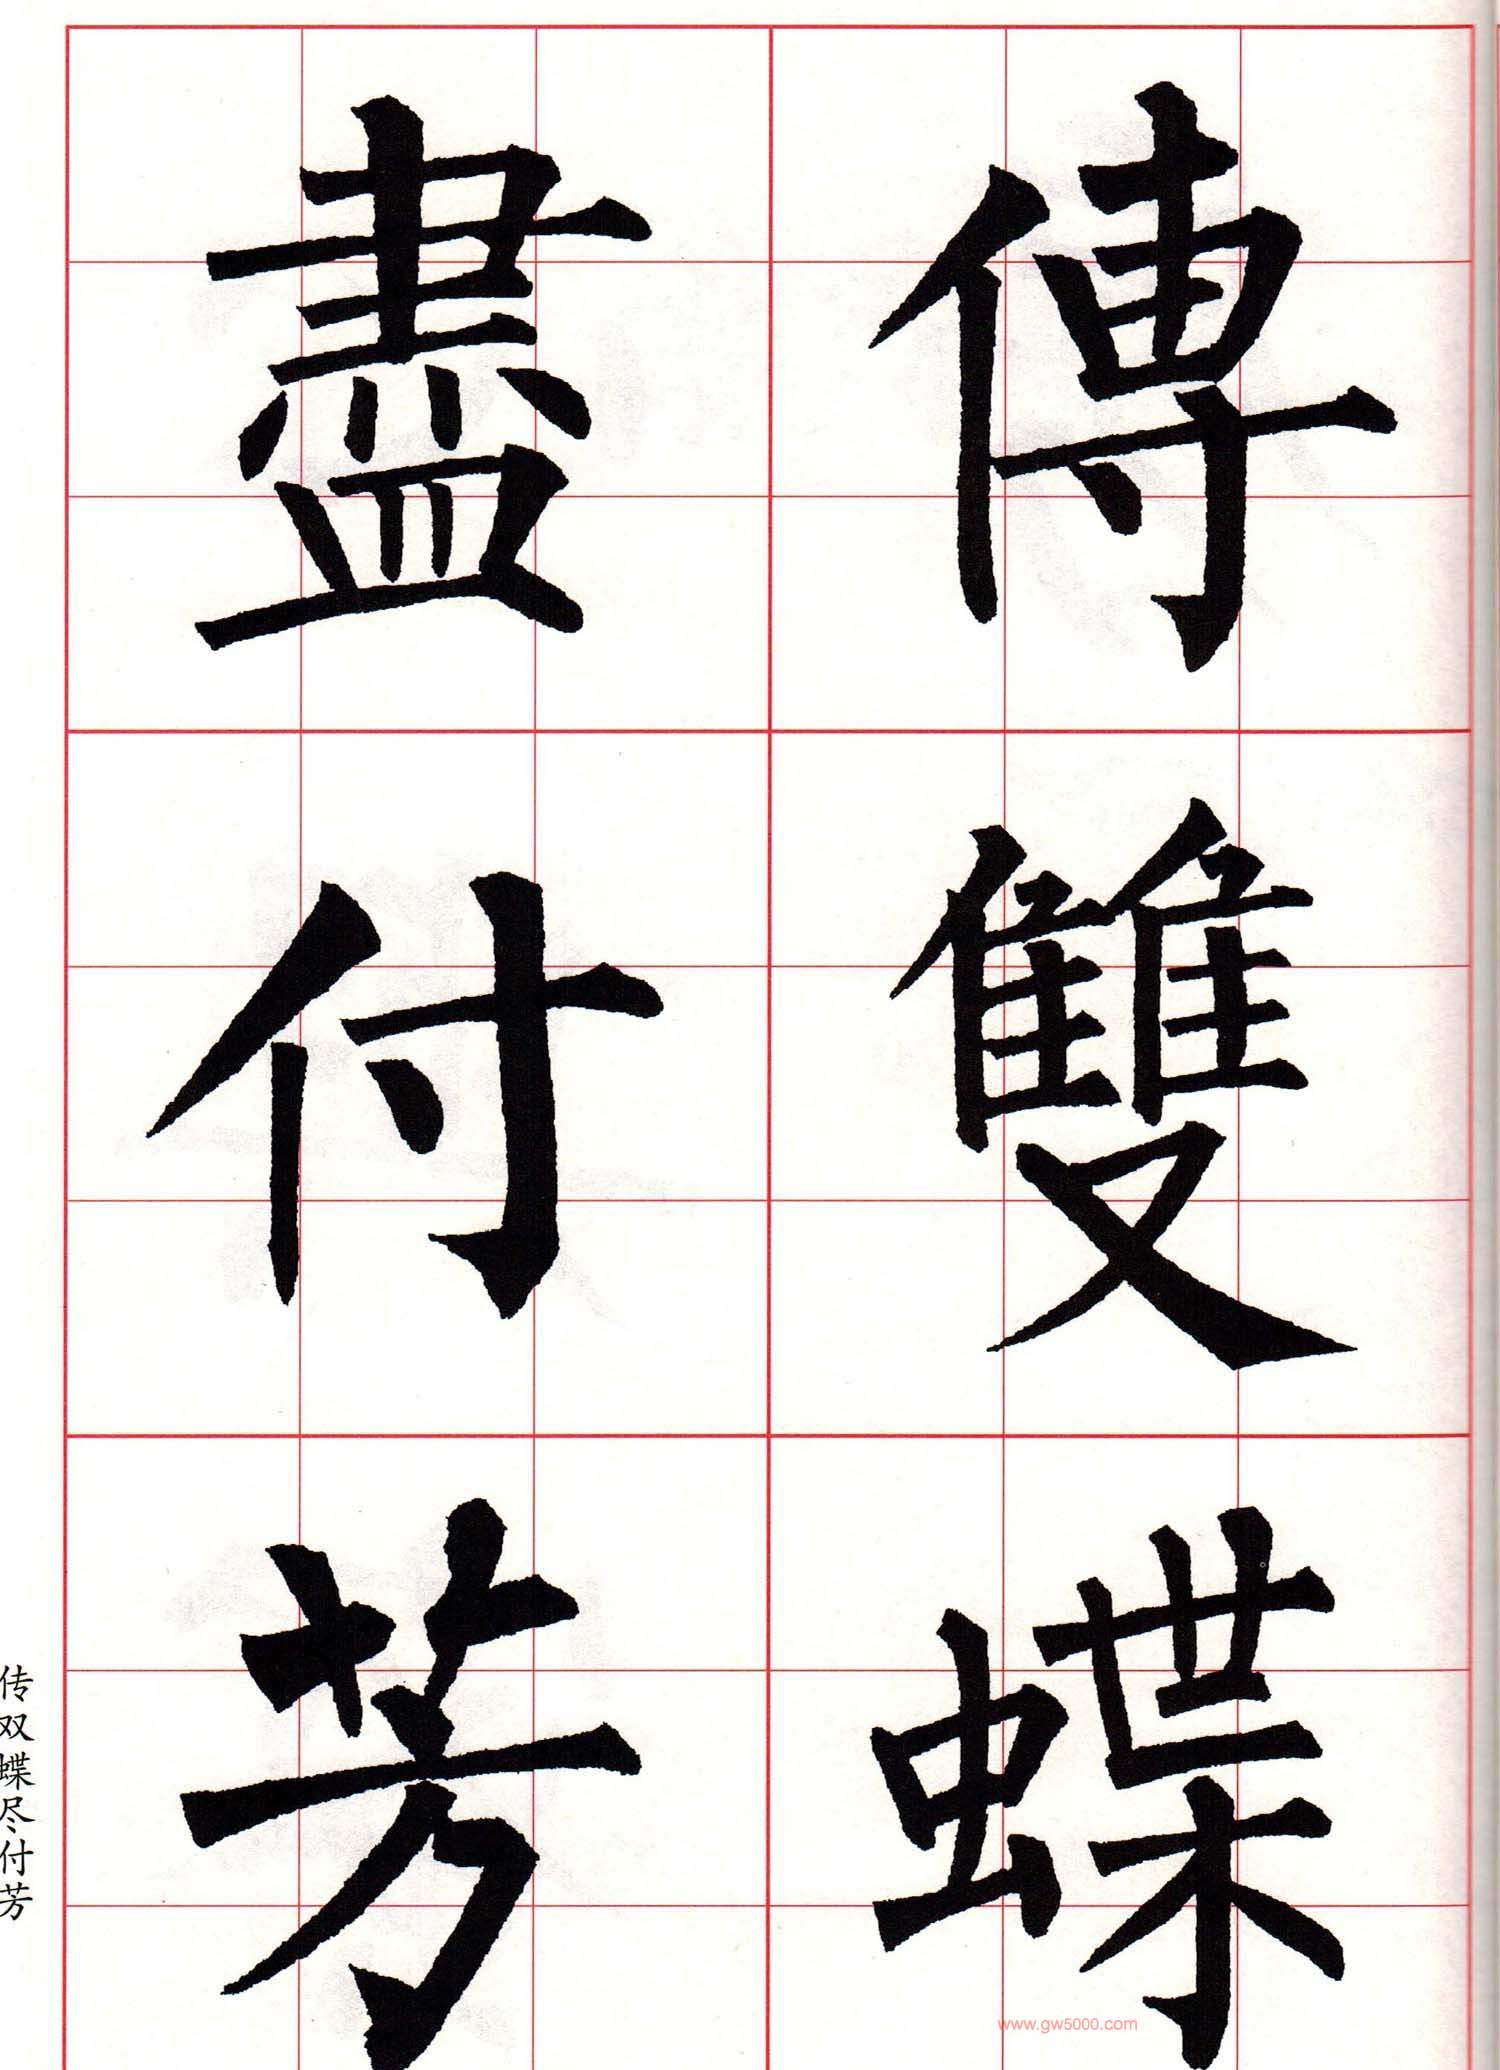 傳雙蝶
盡付芳
传双蝶尽付芳
www.gw5000.com